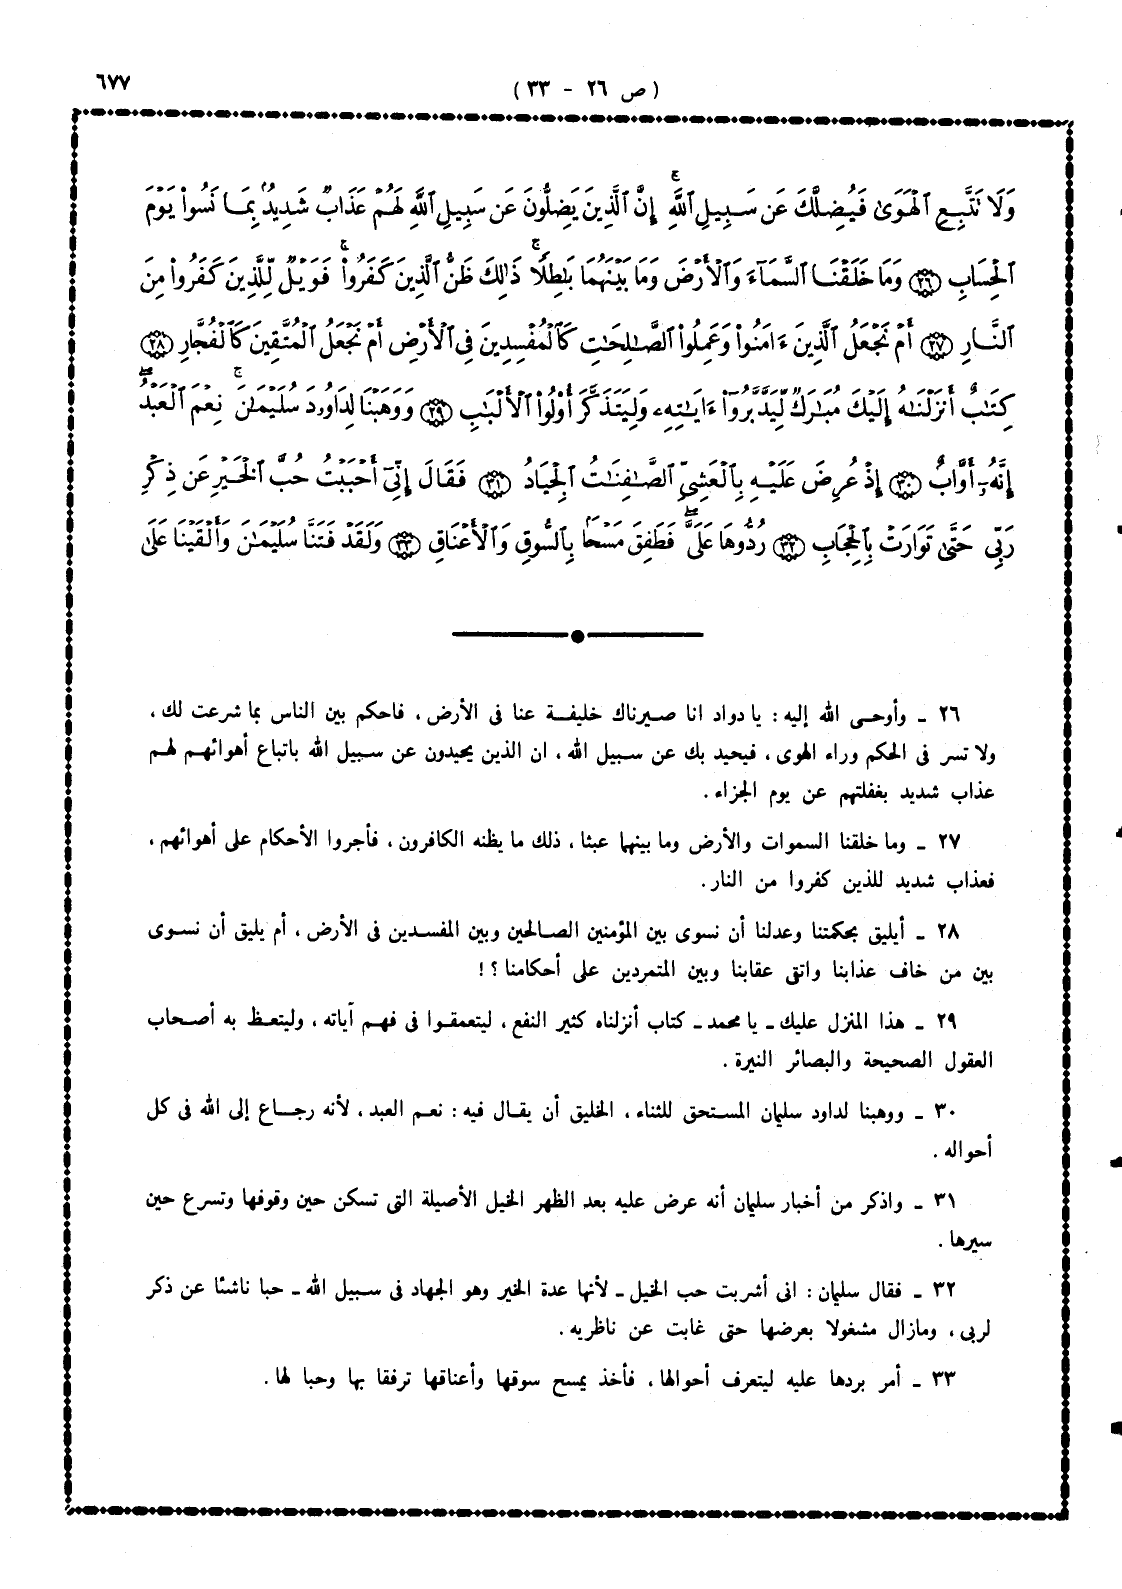 (ص ٢٦ - ٣٣) ٦٧٧
وَلَا تَتَّبِعِ ٱلْهَوَىٰ فَيُضِلَّكَ عَن سَبِيلِ ٱللَّهِۚ إِنَّ ٱلَّذِينَ يَضِلُّونَ عَن سَبِيلِ ٱللَّهِ لَهُمْ عَذَابٌ شَدِيدُۢ بِمَا نَسُوا۟ يَوْمَ
ٱلْحِسَابِ ﴿٢٦﴾ وَمَا خَلَقْنَا ٱلسَّمَآءَ وَٱلْأَرْضَ وَمَا بَيْنَهُمَا بَـٰطِلًاۚ ذَٰلِكَ ظَنُّ ٱلَّذِينَ كَفَرُوا۟ۚ فَوَيْلٌ لِّلَّذِينَ كَفَرُوا۟ مِنَ
ٱلنَّارِ ﴿٢٧﴾ أَمْ نَجْعَلُ ٱلَّذِينَ ءَامَنُوا۟ وَعَمِلُوا۟ ٱلصَّـٰلِحَـٰتِ كَٱلْمُفْسِدِينَ فِى ٱلْأَرْضِ أَمْ نَجْعَلُ ٱلْمُتَّقِينَ كَٱلْفُجَّارِ ﴿٢٨﴾
كِتَـٰبٌ أَنزَلْنَـٰهُ إِلَيْكَ مُبَـٰرَكٌ لِّيَدَّبَّرُوٓا۟ ءَايَـٰتِهِۦ وَلِيَتَذَكَّرَ أُو۟لُوا۟ ٱلْأَلْبَـٰبِ ﴿٢٩﴾ وَوَهَبْنَا لِدَاوُۥدَ سُلَيْمَـٰنَۚ نِعْمَ ٱلْعَبْدُۖ
إِنَّهُۥٓ أَوَّابٌ ﴿٣٠﴾ إِذْ عُرِضَ عَلَيْهِ بِٱلْعَشِىِّ ٱلصَّـٰفِنَـٰتُ ٱلْجِيَادُ ﴿٣١﴾ فَقَالَ إِنِّىٓ أَحْبَبْتُ حُبَّ ٱلْخَيْرِ عَن ذِكْرِ
رَبِّى حَتَّىٰ تَوَارَتْ بِٱلْحِجَابِ ﴿٣٢﴾ رُدُّوهَا عَلَىَّۖ فَطَفِقَ مَسْحًۢا بِٱلسُّوقِ وَٱلْأَعْنَاقِ ﴿٣٣﴾ وَلَقَدْ فَتَنَّا سُلَيْمَـٰنَ وَأَلْقَيْنَا عَلَىٰ
٢٦ - وأوحى الله إليه : يا دواد انا صيرناك خليفة عنا فى الأرض ، فاحكم بين الناس بما شرعت لك ،
ولا تسر فى الحكم وراء الهوى ، فيحيد بك عن سبيل الله ، ان الذين يحيدون عن سبيل الله باتباع أهوائهم لهم
عذاب شديد بغفلتهم عن يوم الجزاء .
٢٧ - وما خلقنا السموات والأرض وما بينهما عبثا ، ذلك ما يظنه الكافرون ، فأجروا الأحكام على أهوائهم ،
فعذاب شديد للذين كفروا من النار .
٢٨ - أيليق بحكمتنا وعدلنا أن نسوى بين المؤمنين الصالحين وبين المفسدين فى الأرض ، أم يليق أن نسوى
بين من خاف عذابنا واتقى عقابنا وبين المتمردين على أحكامنا ؟ !
٢٩ - هذا المنزل عليك - يا محمد - كتاب أنزلناه كثير النفع ، ليتعمقوا فى فهم آياته ، وليتعظ به أصحاب
العقول الصحيحة والبصائر النيرة .
٣٠ - ووهبنا لداود سليمان المستحق للثناء ، الخليق أن يقال فيه : نعم العبد ، لأنه رجاع إلى الله فى كل
أحواله .
٣١ - واذكر من أخبار سليمان أنه عرض عليه بعد الظهر الخيل الأصيلة التى تسكن حين وقوفها وتسرع حين
سيرها .
٣٢ - فقال سليمان : انى أشربت حب الخيل - لأنها عدة الخير وهو الجهاد فى سبيل الله - حبا ناشئا عن ذكر
لربى ، ومازال مشغولا بعرضها حتى غابت عن ناظريه .
٣٣ - أمر بردها عليه ليتعرف أحوالها ، فأخذ يمسح سوقها وأعناقها ترفقا بها وحبا لها .